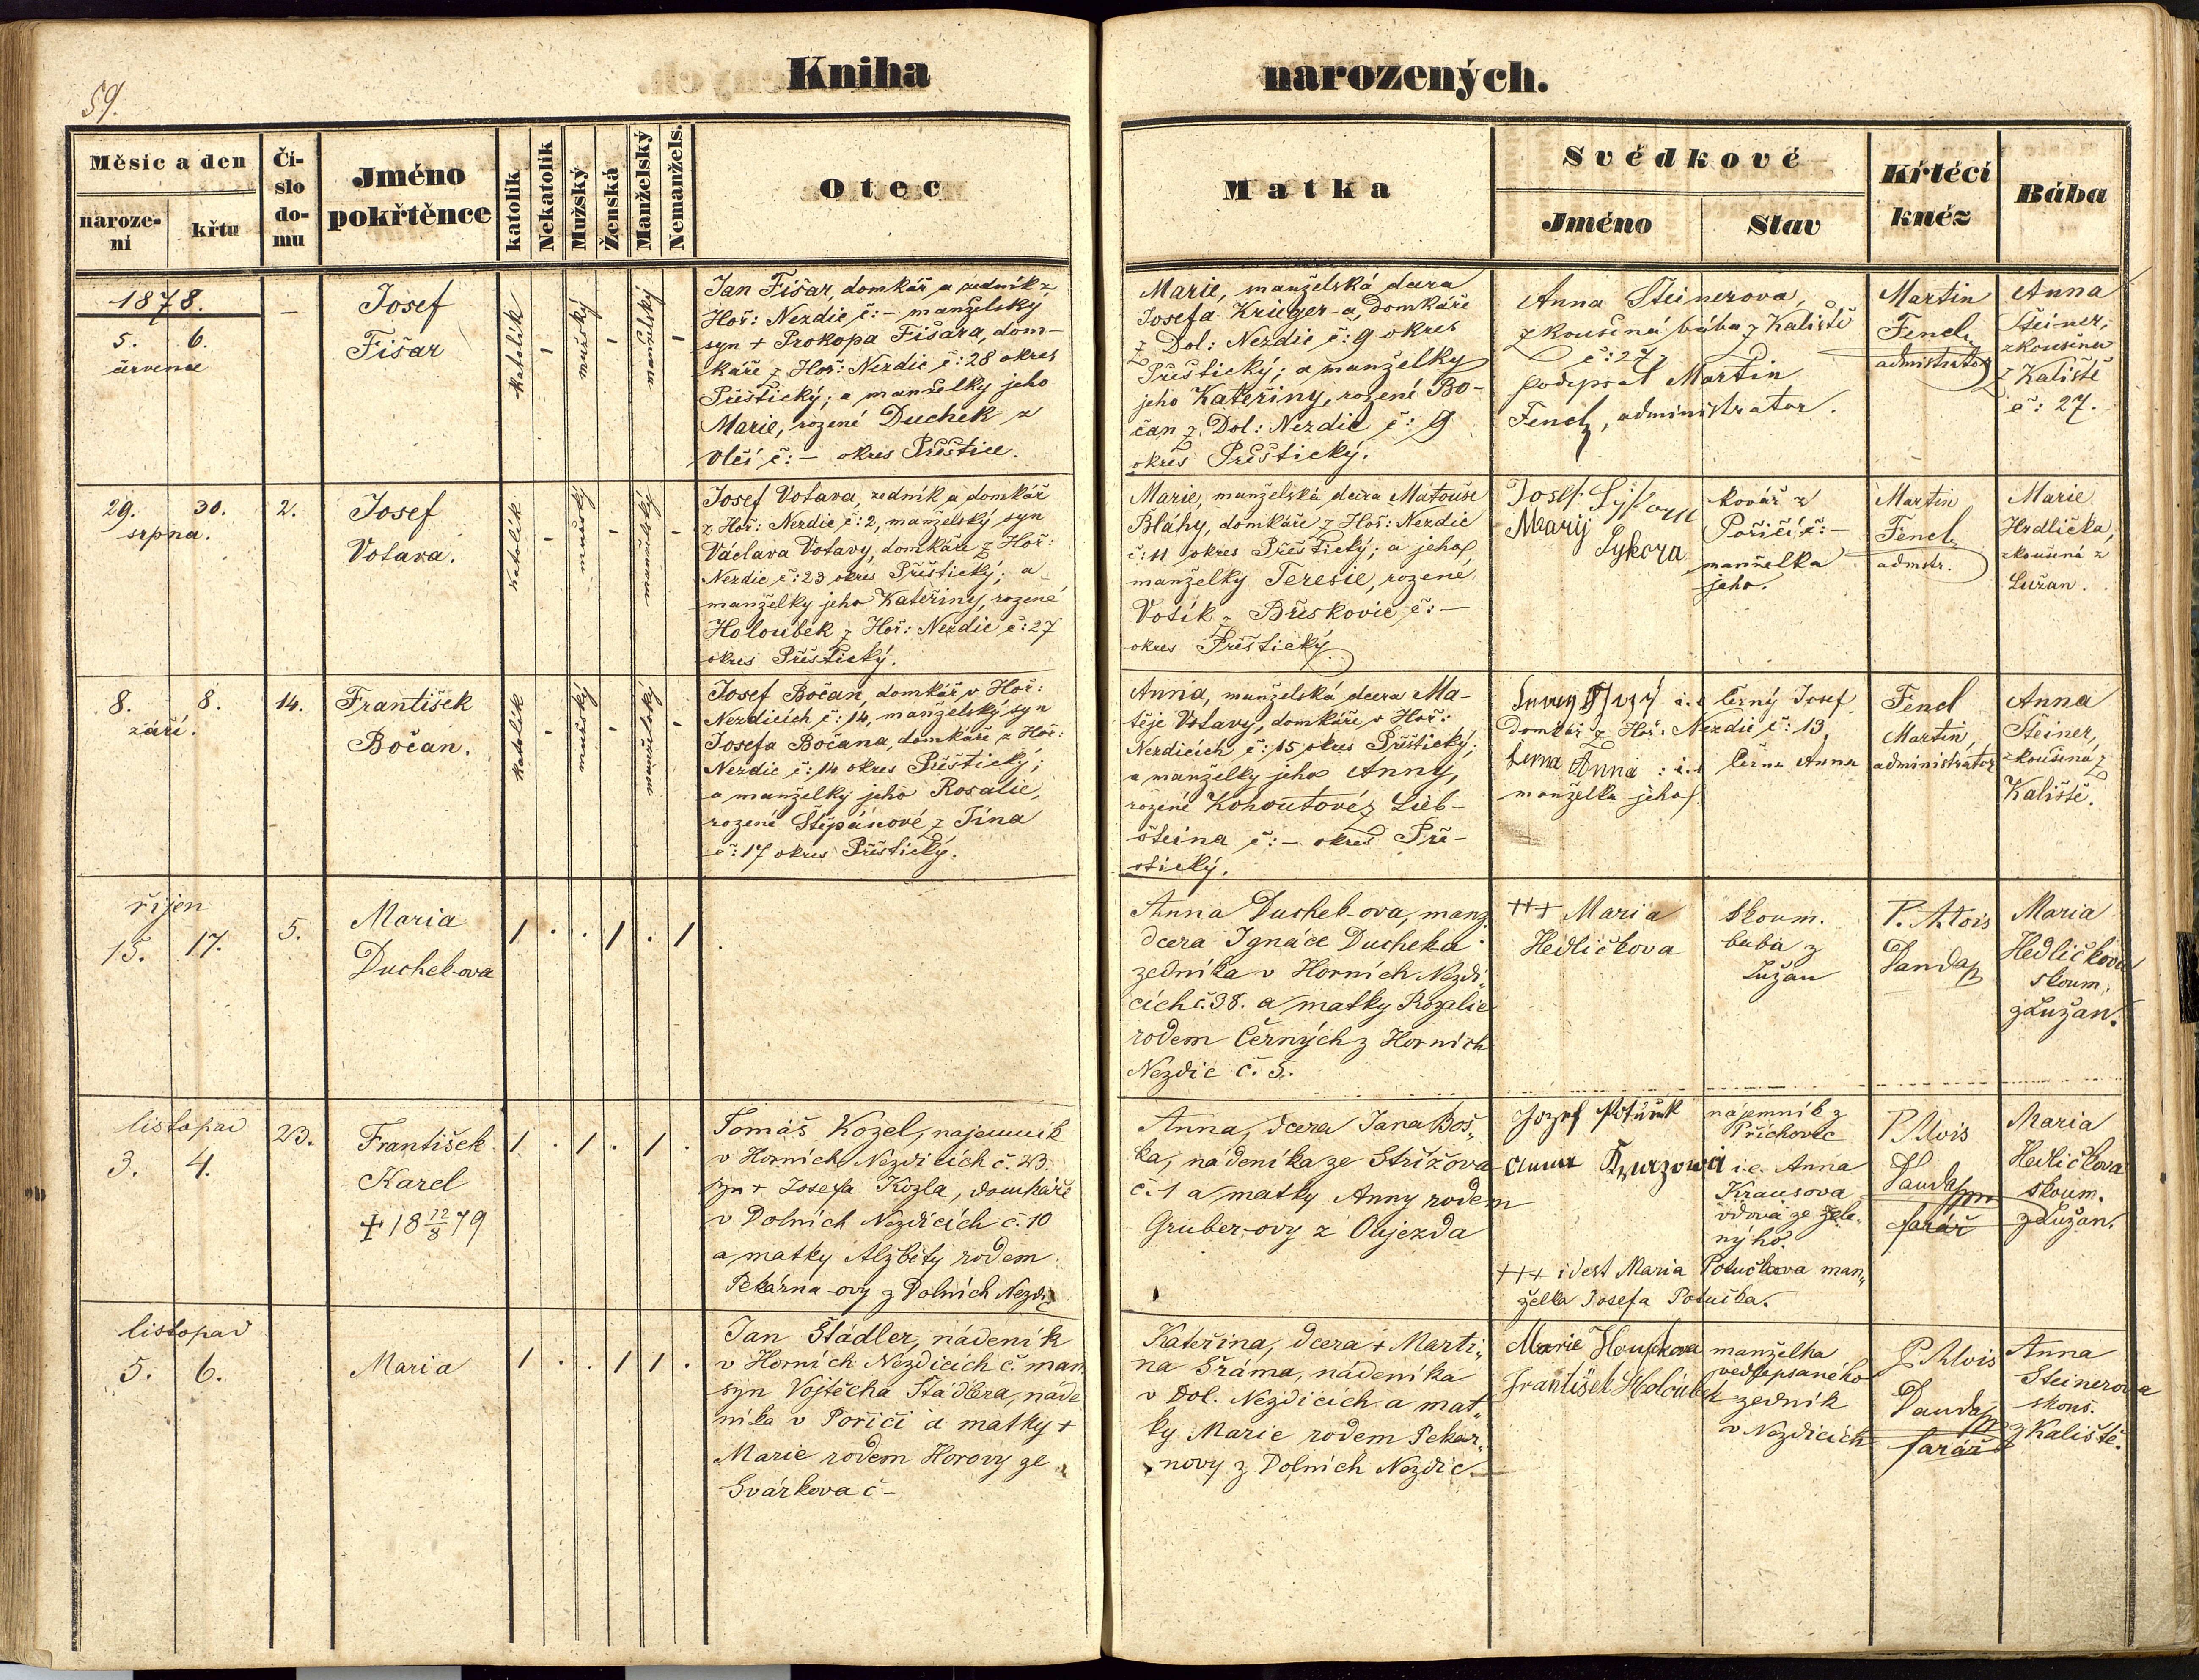 59.
Kniha narozených.
Měsíc a den
narozeni
křtu
Číslo domu
Jméno pokřtěnce
katolík
Nekatolík
Mužský
Ženská
Manželský
Nemanžels.
Otec
Matka
Svědkové
Jméno
Stav
Křtěcí kněz
Bába
1878.
5. 6.
července
—
Josef
Fišar
katolík - mužský - manželský -
Jan Fišar, domkář a zedník z
Hoř: Nezdic č:- manželský
syn + Prokopa Fišara, dom-
káře z Hoř: Nezdic č:28 okres
Přěštický; a manželky jeho
Marie, rozené Duchek z
Vlčí č:- okres Přeštice.
Marie, manželská dcera
Josefa Krieger-a, domkáře
z Dol: Nezdic č:9 okres
Přeštický; a manželky
jeho Kateřiny, rozené Bo-
čan z Dol: Nezdic č:9
okres Přeštický.
Anna Steinerova,
zkoušená bába z Kaliště
č:27,
podepsal Martin
Fencl, administrator.
Martin
Fencl
administrator
Anna
Steiner,
zkoušena
z Kaliště
č: 27.
29. 30.
srpna.
2.
Josef
Votava.
katolík - mužský - manželský -
Josef Votava, zedník a domkář
z Hoř: Nezdic č:2, manželský syn
Václava Votavy, domkáře z Hoř:
Nezdic č:23 okres Přěštický; a
manželky jeho Kateřiny, rozené
Holoubek z Hoř: Nezdic č:27
okres Přěštický.
Marie, manželská dcera Matouše
Bláhy, domkáře z Hoř: Nezdic
č:11 okres Přěštický; a jeho
manželky Teresie, rozené
Votík z Břeskovic č:-
okres Přěštický
Josef Sýkora
Marij Sykora
kovář z
Poříčí č:-
manželka
jeho.
Martin
Fencl
admstr.
Marie
Hrdlička,
zkoušená z
Lužan.
8. 8.
září.
14.
František
Bočan.
katolík - mužský - manželský -
Josef Bočan, domkář v Hoř:
Nezdicích č:14, manželský syn
Josefa Bočana, domkáře z Hoř:
Nezdic č:14 okres Přěštický;
a manželky jeho Rosalie,
rozené Štěpánové z Týna
č:17 okres Přěštický.
Anna, manželská dcera Ma-
těje Votavy, domkáře v Hoř:
Nezdicích č:15 okres Přěštický;
a manželky jeho Anny,
rozené Kohoutové z Lieb-
šteina č:- okres Pře-
štický.
i.e Černý Josef
Domkář z Hoř: Nezdic č:13.
Černa Anna : i.e Černa Anna
manželka jeho.
Fencl
Martin,
administrator
Anna
Steiner,
zkoušená z
Kaliště.
říjen
15. 17.
5.
Maria
Duchek-ova
1 . . 1 . 1
Anna Duchek-ova, manž.
dcera Ignáce Duchek-a
zedníka v Horních Nezdi„
cích č.38. a matky Rozalie
rodem Černých z Horních
Nezdic č. 5.
+++ Maria
Hedličkova
skoum.
baba z
Lužan
P. Alois
Vanda
Maria
Hedličkova
skoum.
z Lužan.
listopad
3. 4.
23.
František
Karel
+ 18 12/8 79
1 . 1 . 1 .
Tomáš Kozel, najemník
v Horních Nezdicích č. 23.
syn + Josefa Kozla, domkáře
v Dolních Nezdicích č. 10
a matky Alžběty rodem
Pekárna-ovy z Dolních Nezdic
Anna, dcera Jana Boš„
ka, nádeníka ze Střížova
č. 1 a matky Anny rodem
Gruber-ovy z Oujezda
Jozef Potůček
Anna
najemník z
Příchovic
i.e. Anna
Krausova
vdova ze Zele„
nýho.
+++ idest Maria Potučkova man„
želka Josefa Potučka.
P. Alois
Vanda
farář
Maria
Hedličkova
skoum.
z Lužan.
listopad
5. 6.
Maria
1 . . 1 1 .
Jan Štádler, nádeník
v Horních Nezdicích č. man
syn Vojtěcha Štádlera, náde
níka v Poříčí a matky +
Marie rodem Horovy ze
Svárkova č -
Kateřina, dcera + Marti„
na Šráma, nádeníka
v Dol. Nezdicích a mat„
ky Marie rodem Pekár„
novy z Dolních Nezdic.
Marie
František Holoubek
manželka
vedlepsaného
zedník
v Nezdicích
P. Alois
Vanda
farář
Anna
Steinerova
skouš.
z Kaliště.